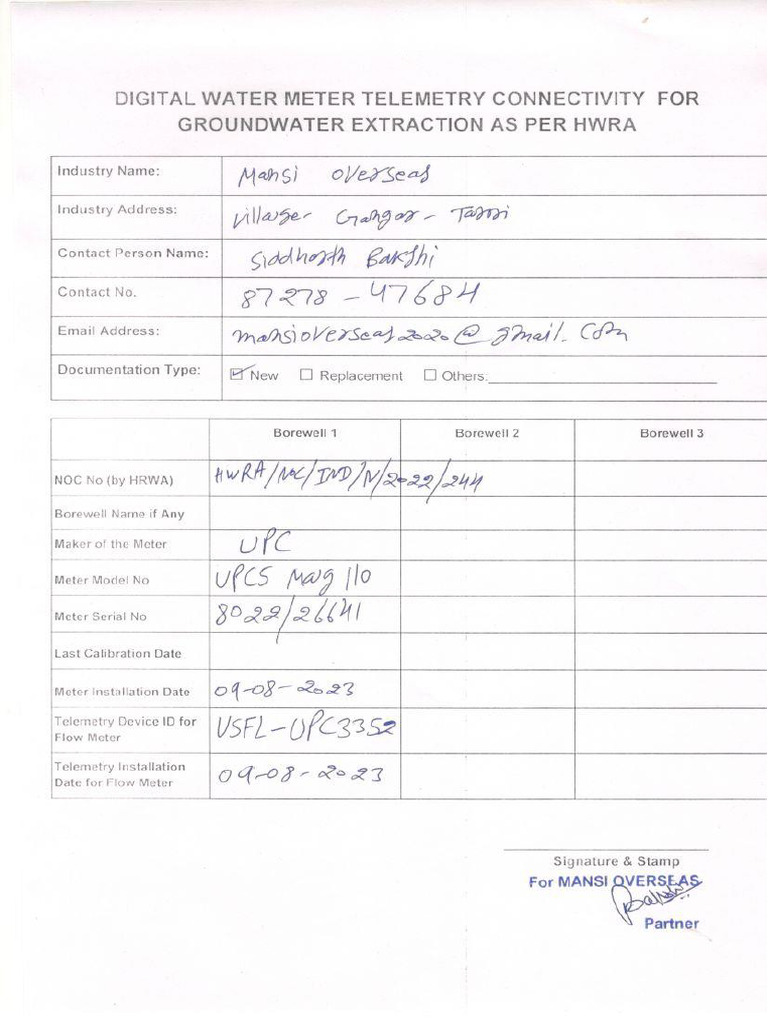 DIGITAL WATER METER TELEMETRY CONNECTIVITY FOR
GROUNDWATER EXTRACTION AS PER HWRA
Industry Name: Mansi Overseas
Industry Address: Village- Gangar - Taraori
Contact Person Name: Siddharth Bakshi
Contact No. 87278-47684
Email Address: mansioverseas2020@gmail.com
Documentation Type: ☑ New ☐ Replacement ☐ Others:
Borewell 1 Borewell 2 Borewell 3
NOC No (by HRWA) HWRA/NOC/IND/N/2022/244
Borewell Name if Any
Maker of the Meter UPC
Meter Model No UPCS Mag 110
Meter Serial No 8022/26641
Last Calibration Date
Meter Installation Date 09-08-2023
Telemetry Device ID for
Flow Meter USFL-UPC3352
Telemetry Installation
Date for Flow Meter 09-08-2023
Signature & Stamp
For MANSI OVERSEAS
Bakshi
Partner